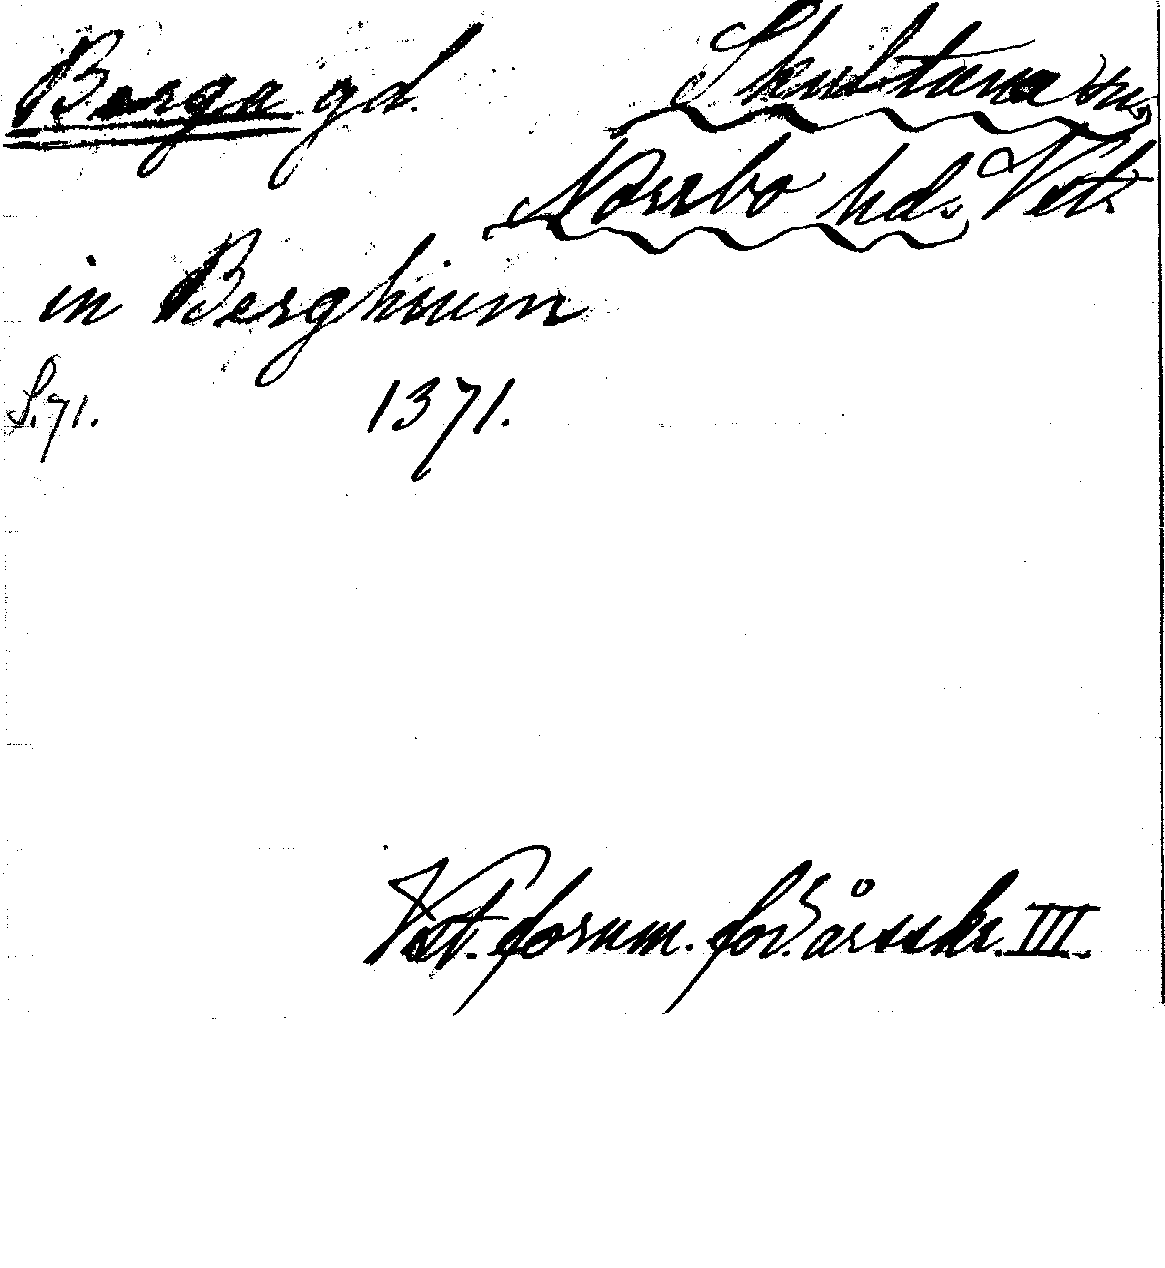 Berga gd. Skultuna sn.
Norrbo hd. Vstl.
in Berghium
S. 71. 1371.
Vstl. fornm. för. årsskr. III.